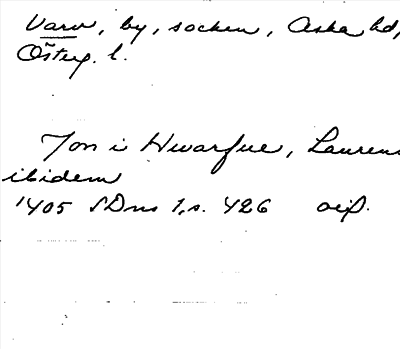 Varv, by, socken, Aska hd,
Österg. l.
Jon i Hwarfue, Laurens
ibidem
1405 SDns 1, s. 426 orig.